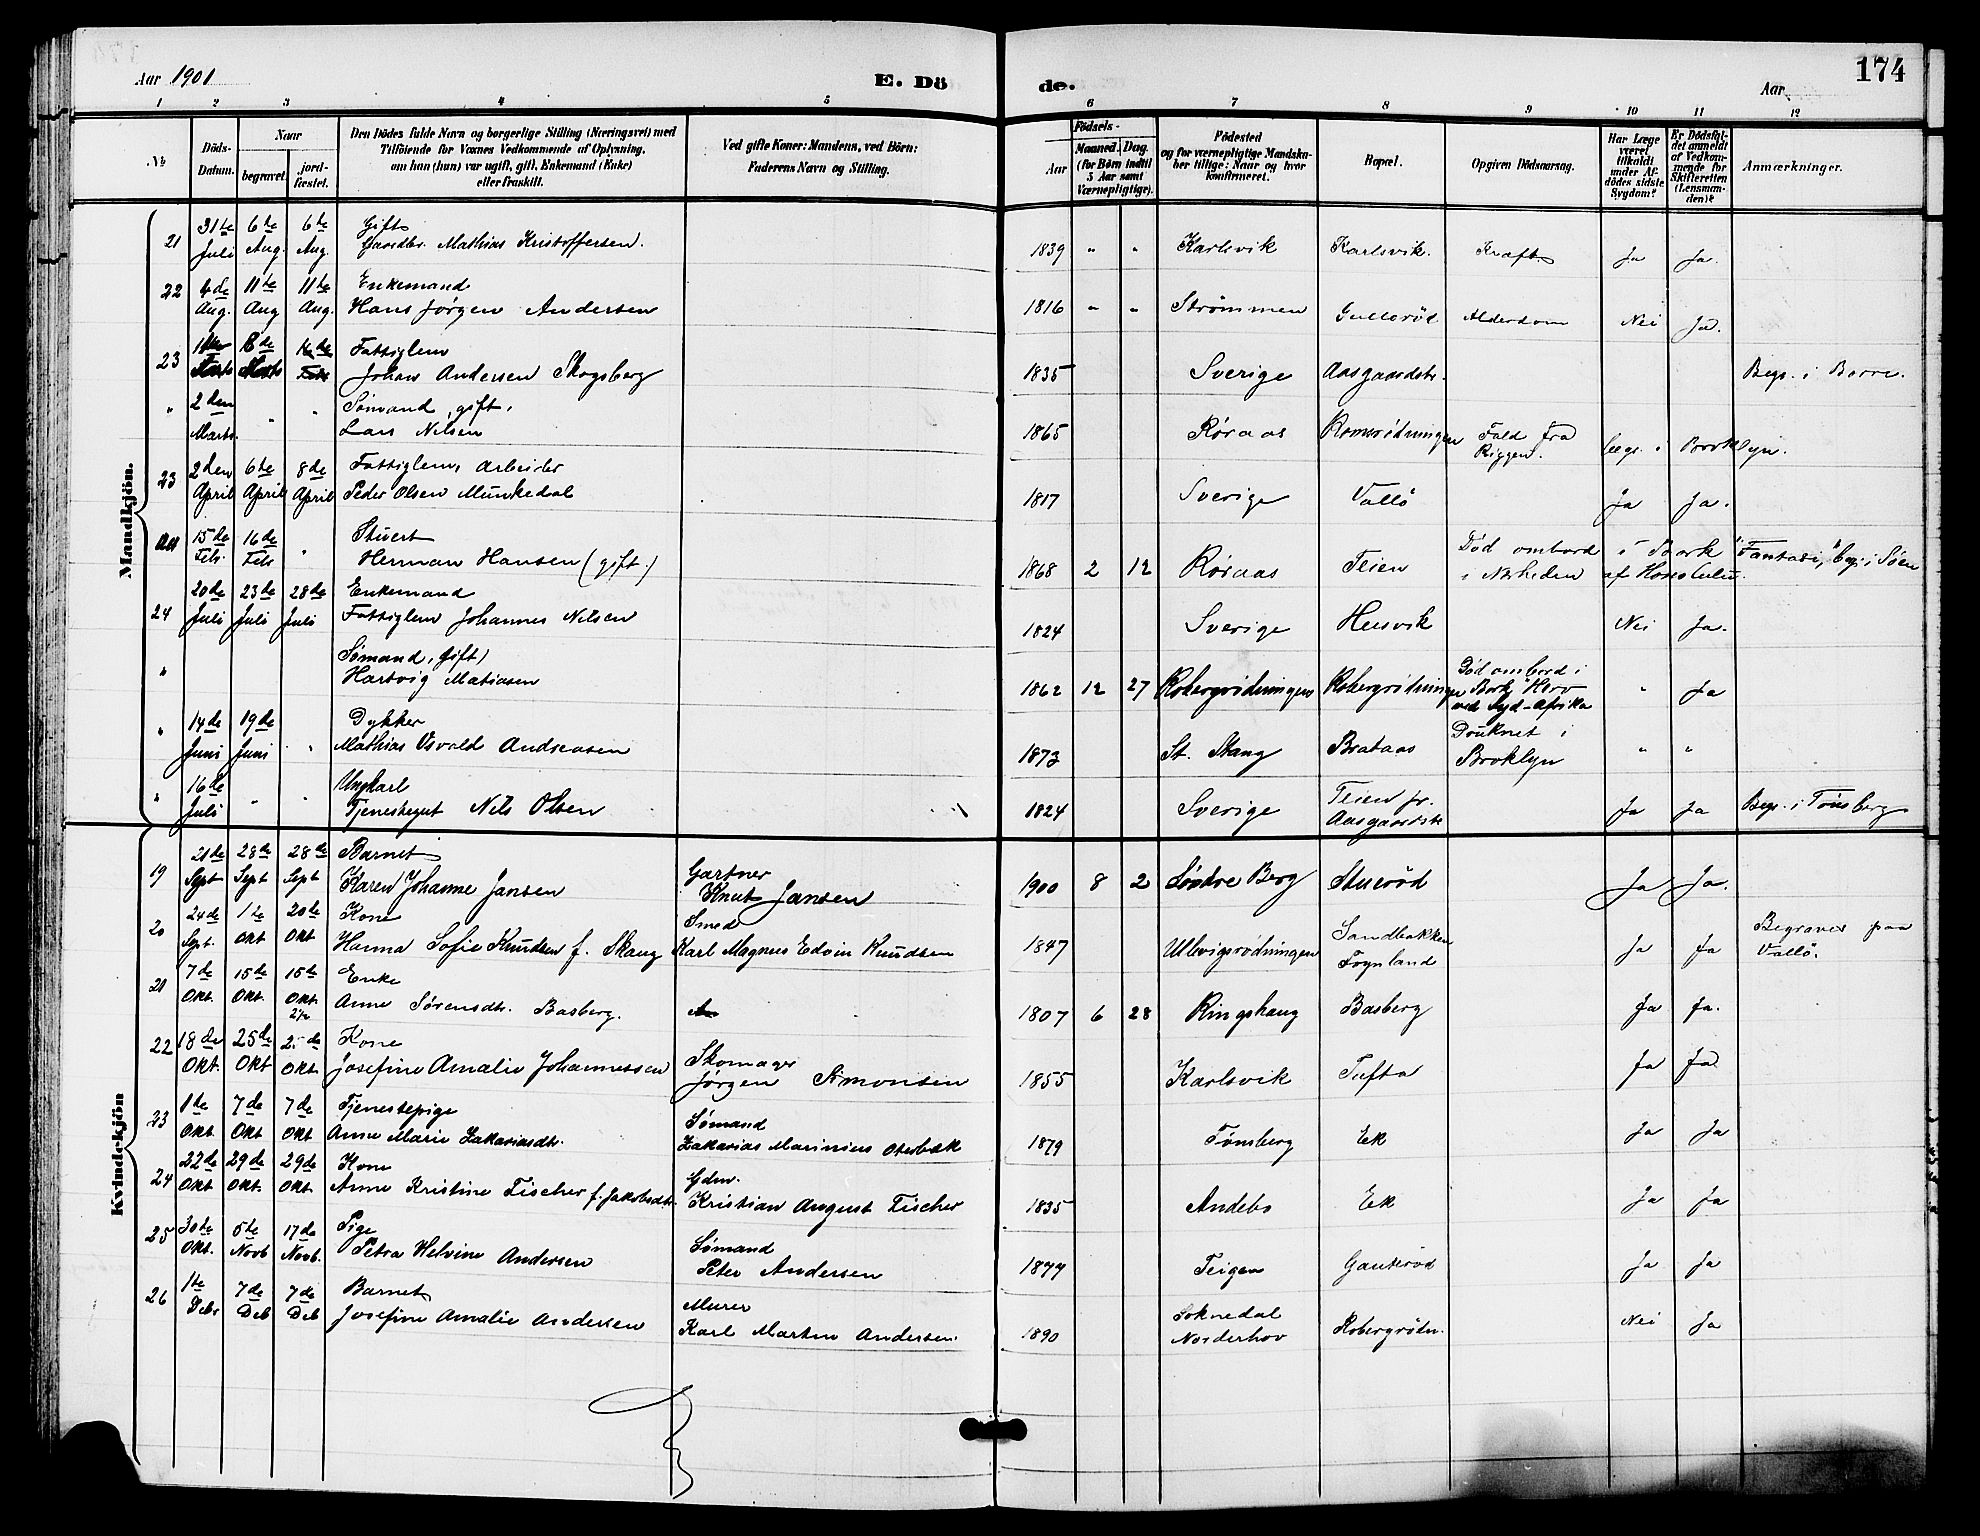 174
Aar 1901
E. Dö
de.
Aar
1 2 3 4 5 6 7 8 9 10 11 12
№
Döds-
Datum.
Naar
begravet.
jord-
fæstet.
Den Dödes fulde Navn og borgerlige Stilling (Næringsvei) med
Tilföiende for Voxnes Vedkommende af Oplysning,
om han (hun) var ugift, gift, Enkemand (Enke)
eller fraskilt.
Ved gifte Koner: Mandens, ved Börn:
Faderens Navn og Stilling.
Födsels-
Aar
Maaned. Dag.
(for Börn indtil
3 Aar samt
Værnepligtige).
Födested
og for værnepligtige Mandska-
ber tillige: Naar og hvor
konfirmeret.
Bopæl.
Opgiven Dödsaarsag.
Har Læge
været
tilkaldt
under Af-
dödes sidste
Sygdom?
Er Dödsfal-
det anmeldt
af Vedkom-
mende for
Skifteretten
(Lensman-
den)?
Anmærkninger.
Mandkjön.
21 31te Juli 6te Aug. 6te Aug. Gift
Gaardbr. Mathias Kristoffersen. 1839 " " Karlsvik Karlsvik. Kræft Ja Ja.
22 4de Aug. 11te Aug 11te Aug. Enkemand
Hans Jørgen Andersen 1816 " " Strømmen Gullerød Alderdom Nei Ja.
23 Fattiglem
Johan Andersen Skogsberg 1835 Sverige Aasgaardstr. Begr. i Borre.
" 2den Marts. " " Sømand, gift,
Lars Nilsen 1865 Røraas Romsrødningen Fald fra
Riggen. begr. i Brooklyn.
23 2den April 6te April 8de April Fattiglem, Arbeider
Peder Olsen Munkedal 1817 Sverige Vallö Ja Ja.
15de Feb. 16de Feb " Stuert
Herman Hansen (gift.) 1868 2 12 Røraas Teien Død ombord i Bark "Fantasi," begr. i Søen
i Nærheden af Honolulu.
24 20de Juli 23de Juli 28de Juli Enkemand
Fattiglem Johannes Nilsen 1824 Sverige Husvik Nei Ja.
" Sømand, gift)
Hartvig Matiasen 1862 12 27 Robergrødningen Robergrødningen Død ombord i
Bark "Hero
ved Syd-Afrika " Ja
" 14de Juni 19de Juni " Dykker
Mathias Osvald Andreasen 1873 St. Stang Brataas Druknet i
Broklyn " "
" 16de Juli " " Ungkarl
Tjenestegut Nils Olsen 1824 Sverige Teien pr.
Aasgaardstr Ja Ja Begr. i Tønsberg
Kvindekjön
19 21de Sept 28de Sept 28de Sept Barnet
Karen Johanne Jansen Gartner
Knut Jansen 1900 8 2 Søndre Berg Sturød Ja Ja.
20 24de Sept. 1te Okt 20de Okt Kone
Hanna Sofie Knudsen f. Skaug Smed
Karl Magnus Edvin Knudsen 1847 Ullevigsrødningen Sandbakken
Fognland Ja Ja Begravet paa
Vallö.
21 7de Okt. 15de Okt. 15de Okt. Enke
Anne Sørensdtr. Basberg. 1807 6 28 Ringshaug Basberg Ja Ja.
22 18de Okt. 25de Okt Okt. Kone
Josefine Amalie Johannessen Skomager
Jørgen Simonsen 1855 Karlsvik Tufta Ja Ja
23 1te Okt. 7de Okt 7de Okt Tjenestepige
Anne Marie Zakariasdtr. Sømand
Zakarias Marinius Oterbæk 1879 Tønsberg Ek Ja Ja
24 22de Okt. 29de Okt. 29de Okt. Kone
Anne Kristine Fischer f. Jakobsdtr. Gdm.
Kristian August Fischer 1835 Andebo Ek Ja Ja
25 30te Okt. 5te Novb 17de Novb. Pige
Petra Helvine Andersen Sømand
Peter Andersen 1877 Teigen Gauterød Ja Ja
26 1te Debr 7de Deb 7de Deb Barnet
Josefine Amalie Andersen Murer
Karl Martin Andersen. 1890 Soknedal
Norderhov Robergrødn. Nei Ja